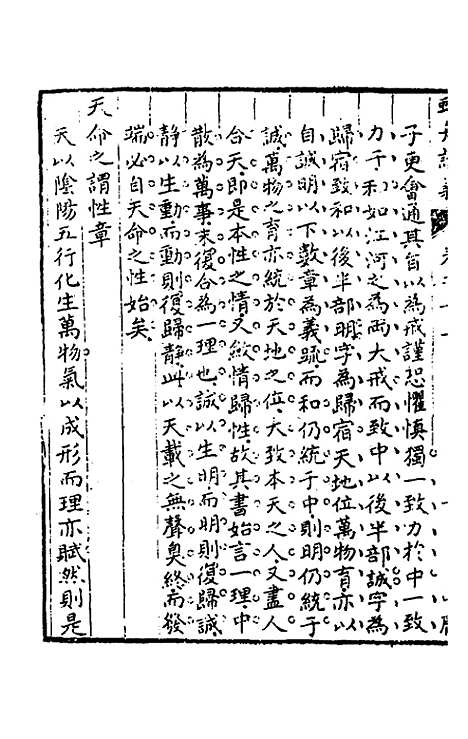 子更會通其旨以為戒謹恐懼慎獨一致力於中一致
力于和如江河之為兩大戒而致中以後半部誠字為
歸宿致和以後半部明字為歸宿天地位萬物育亦以
自誠明以下數章為義疏而和仍統于中則明仍統于
誠萬物之育亦統於天地之位大致本天之人又盡人
合天即是本性之情又斂情歸性故其書始言一理中
散為萬事末復合為一理也誠以生明而明則復歸誠
靜以生動而動則復歸靜此以天載之無聲臭終而發
端必自天命之性始矣
天命之謂性章
天以陰陽五行化生萬物氣以成形而理亦賦然則是